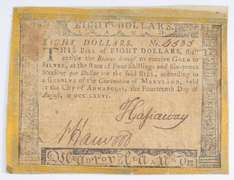 EIGHT DOLLARS.
EIGHT DOLLARS. No.
THIS Bill of EIGHT DOLLARS, shall
entitle the Bearer hereof to receive GOLD or
SILVER, at the Rate of Four Shillings and Six-pence
Sterling per Dollar for the said Bill, according to
a RESOLVE of the CONVENTION of MARYLAND, held
at the City of ANNAPOLIS, the Fourteenth Day of
August, MDCCLXXVI.
Harwood